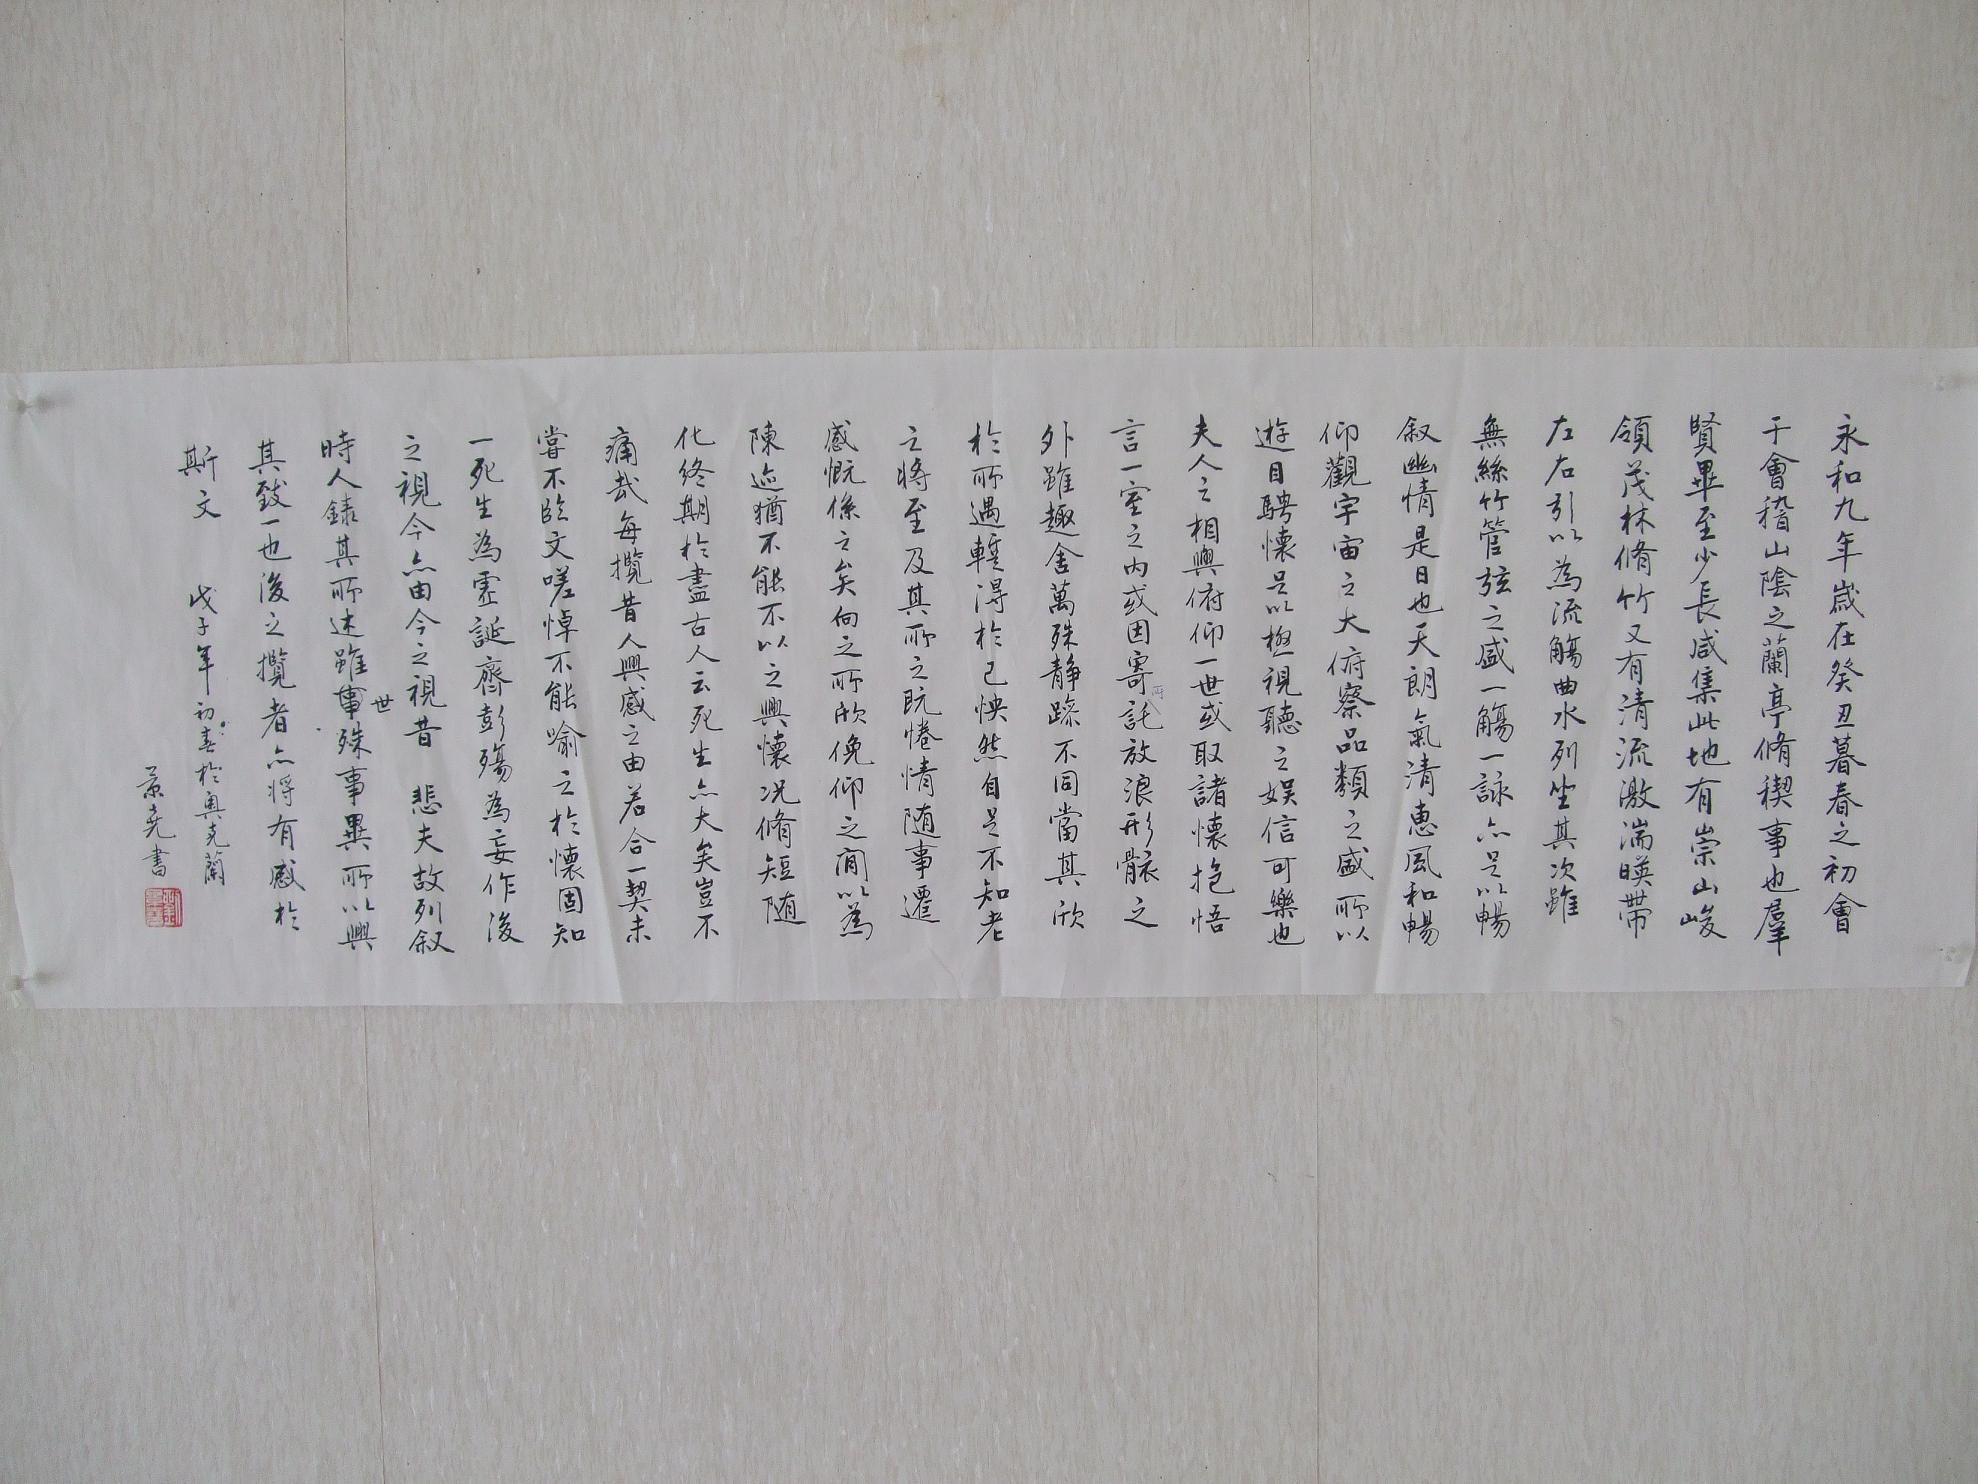 永和九年歲在癸丑暮春之初會
于會稽山陰之蘭亭脩稧事也羣
賢畢至少長咸集此地有崇山峻
領茂林脩竹又有清流激湍暎帶
左右引以為流觴曲水列坐其次雖
無絲竹管弦之盛一觴一詠亦足以暢
叙幽情是日也天朗氣清惠風和暢
仰觀宇宙之大俯察品類之盛所以
遊目騁懷足以極視聽之娛信可樂也
夫人之相與俯仰一世或取諸懷抱悟
言一室之內或因寄所託放浪形骸之
外雖趣舍萬殊靜躁不同當其欣
於所遇蹔得於己怏然自足不知老
之將至及其所之既惓情随事遷
感慨係之矣向之所欣俛仰之閒以為
陳迹猶不能不以之興懷况脩短随
化終期於盡古人云死生亦大矣豈不
痛哉每攬昔人興感之由若合一契未
嘗不臨文嗟悼不能喻之於懷固知
一死生為虛誕齊彭殤為妄作後
之視今亦由今之視昔 悲夫故列叙
時人錄其所述雖世事殊事異所以興
其致一也後之攬者亦將有感於
斯文 戊子年初春於奧克蘭
景堯書